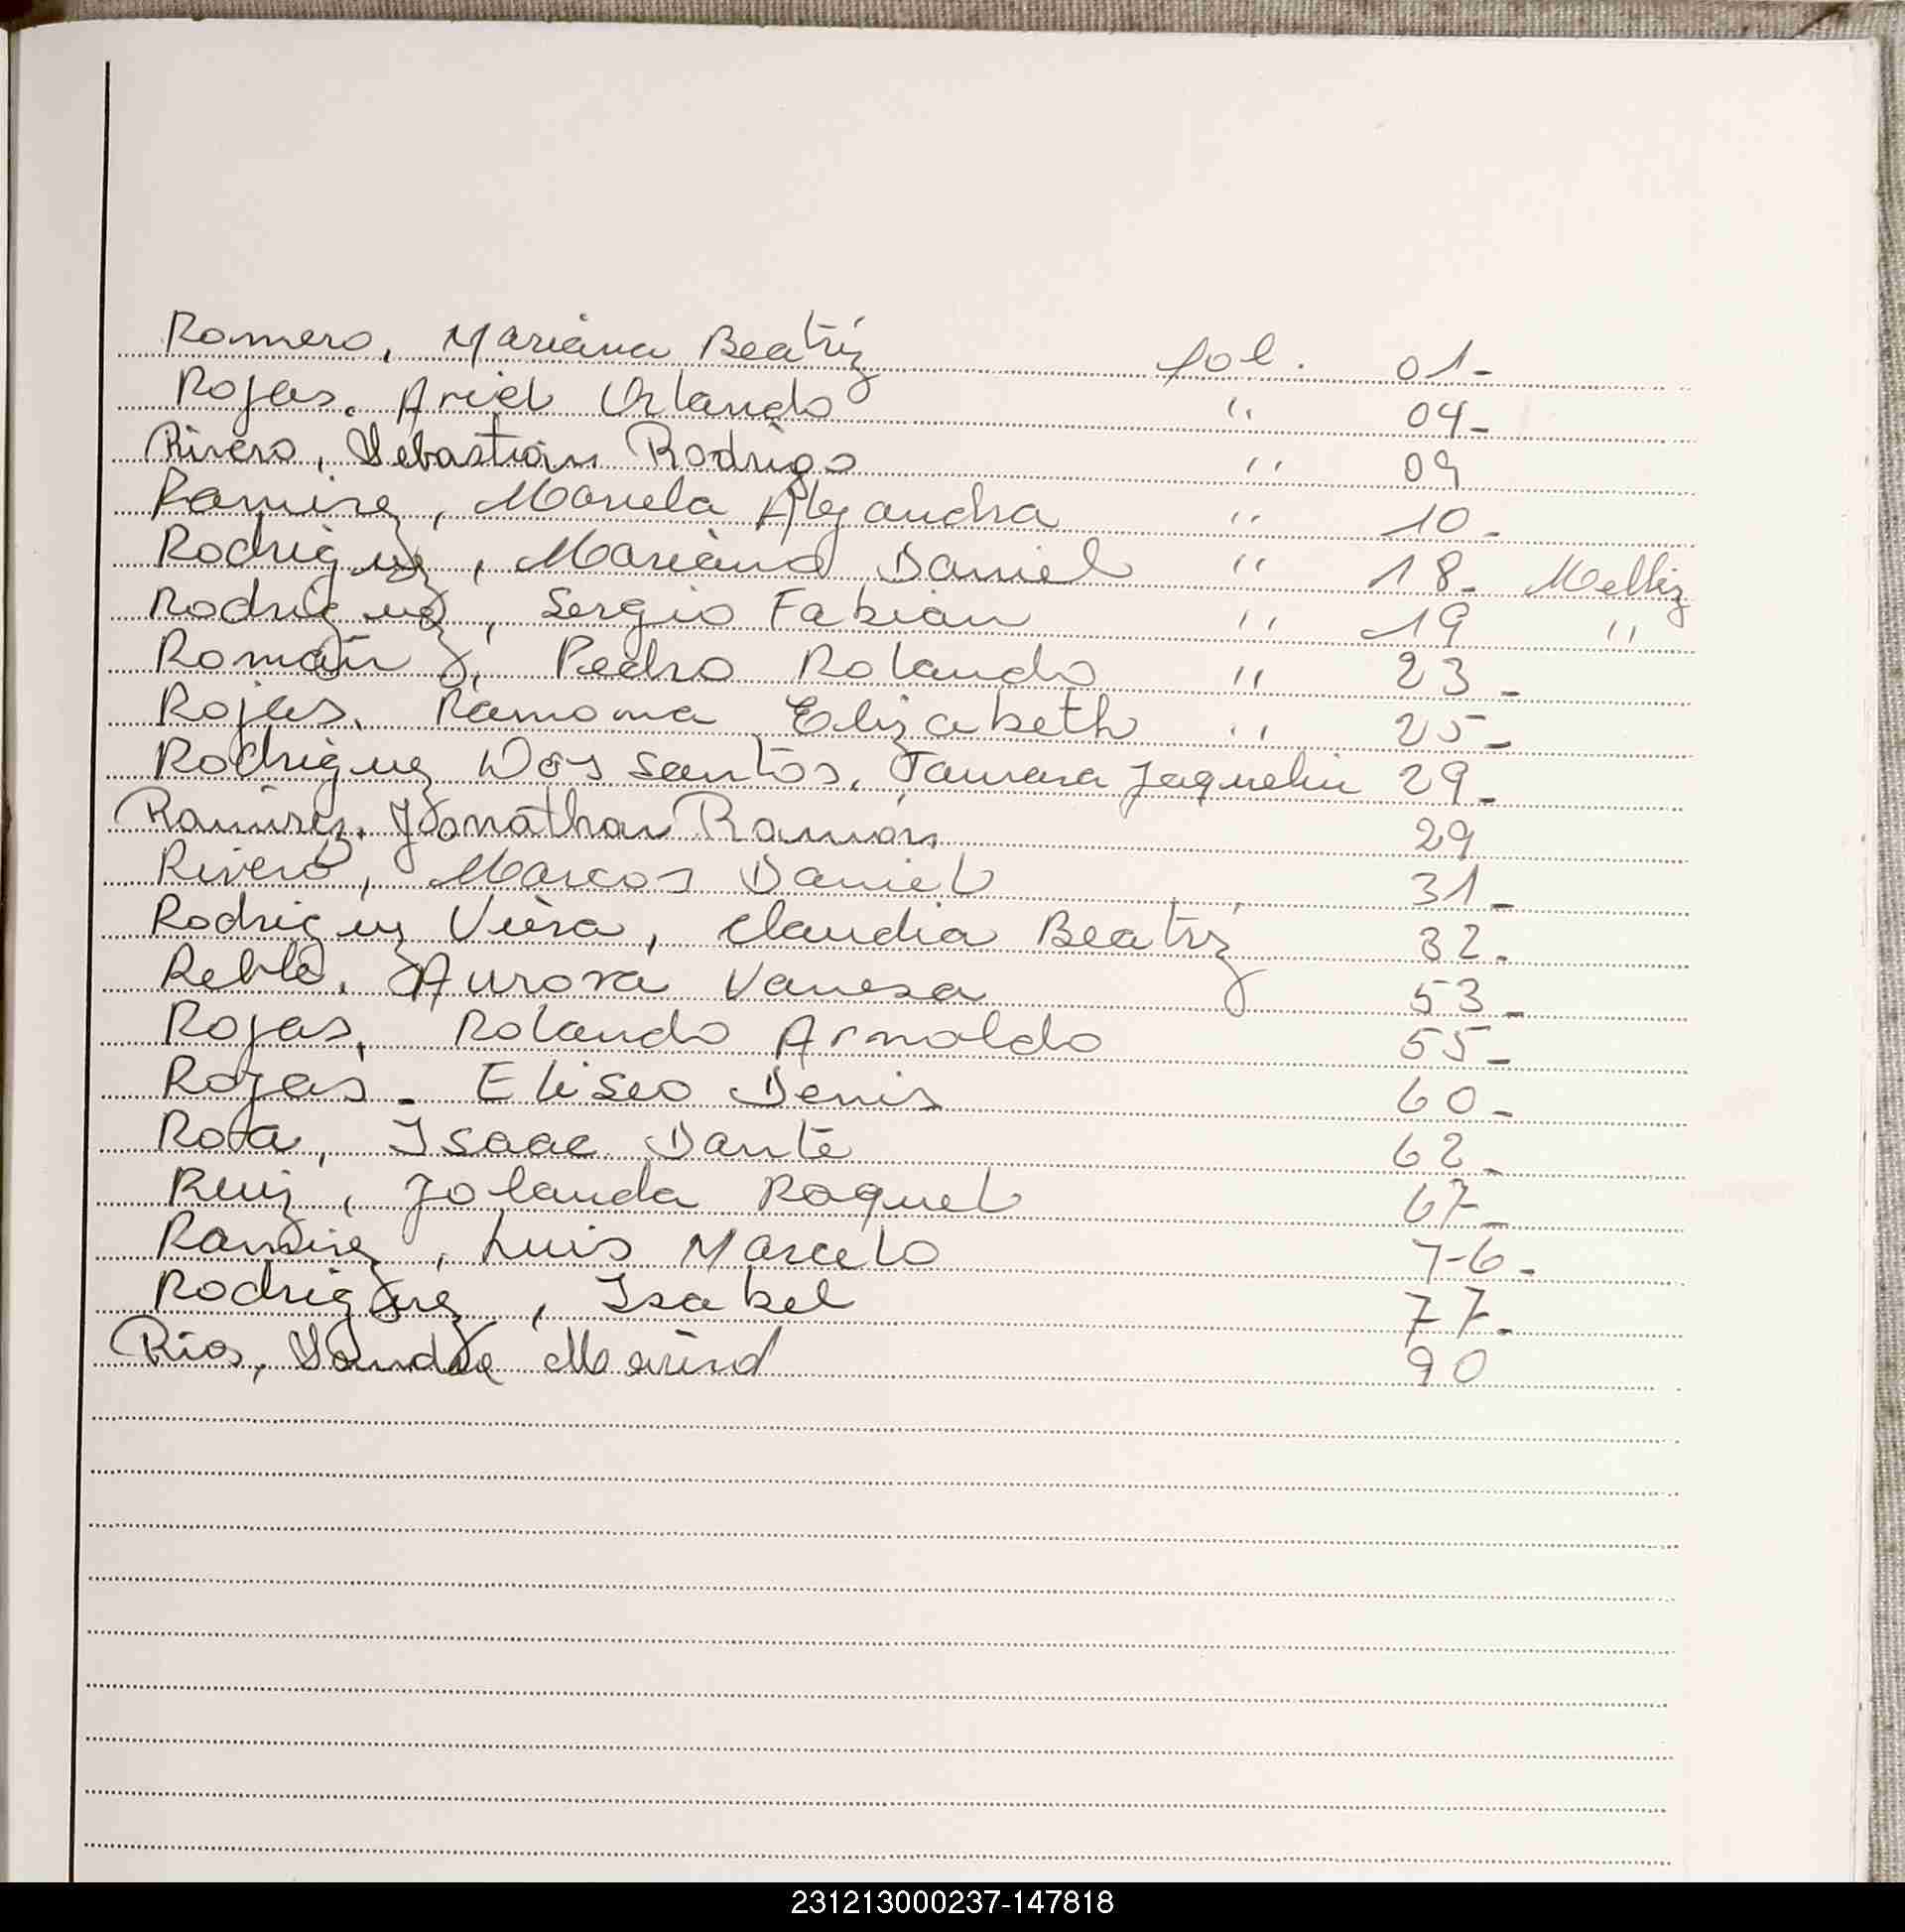 Romero, Mariana Beatriz fol. 01-
Rojas, Ariel Orlando " 04-
Rivero, Sebastián Rodrigo " 09
Ramirez, Mariela Alejandra " 10-
Rodriguez, Mariano Daniel " 18- Melliz
Rodriguez, Sergio Fabian " 19 "
Román, Pedro Rolando " 23-
Rojas, Ramona Elizabeth " 25-
Rodriguez Dos Santos, Tamara Jaquelin 29-
Ramirez, Jonathan Ramón 29
Rivero, Marcos Daniel 31-
Rodriguez Viera, Claudia Beatriz 32-
Aurora Vanesa 53-
Rojas, Rolando Arnoldo 55-
Rojas - Eliseo Denis 60-
Roa, Isaac Dante 62-
Ruiz, Yolanda Raquel 67-
Ramirez, Luis Marcelo 76-
Rodriguez, Isabel 77-
Rios, Sandra 90
231213000237-147818